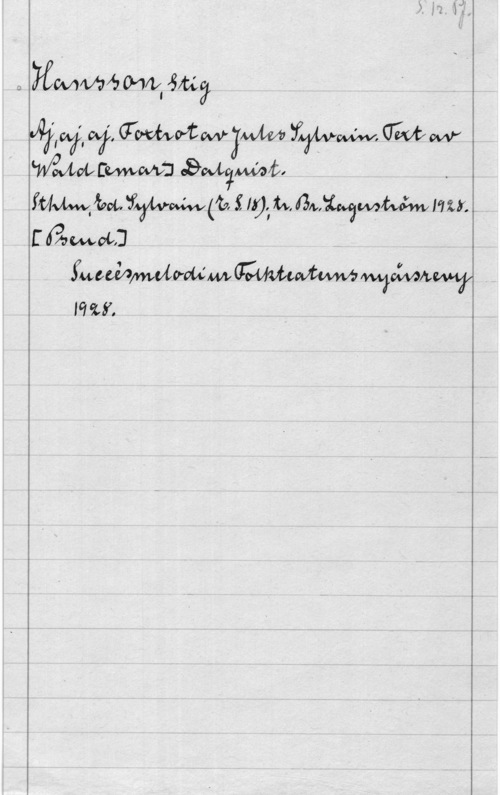 S. 12. Pf.
Hansson, Stig
Aj, aj, aj. Foxtrot av Jules Sylvain. Text av
Wald[emar] Dalquist.
Sthlm, Ed. Sylvain (E. S. 18); tr. Br. Lagerström 1928.
[Pseud.]
Succèsmelodi ur Folkteaterns nyårsrevy
1928.